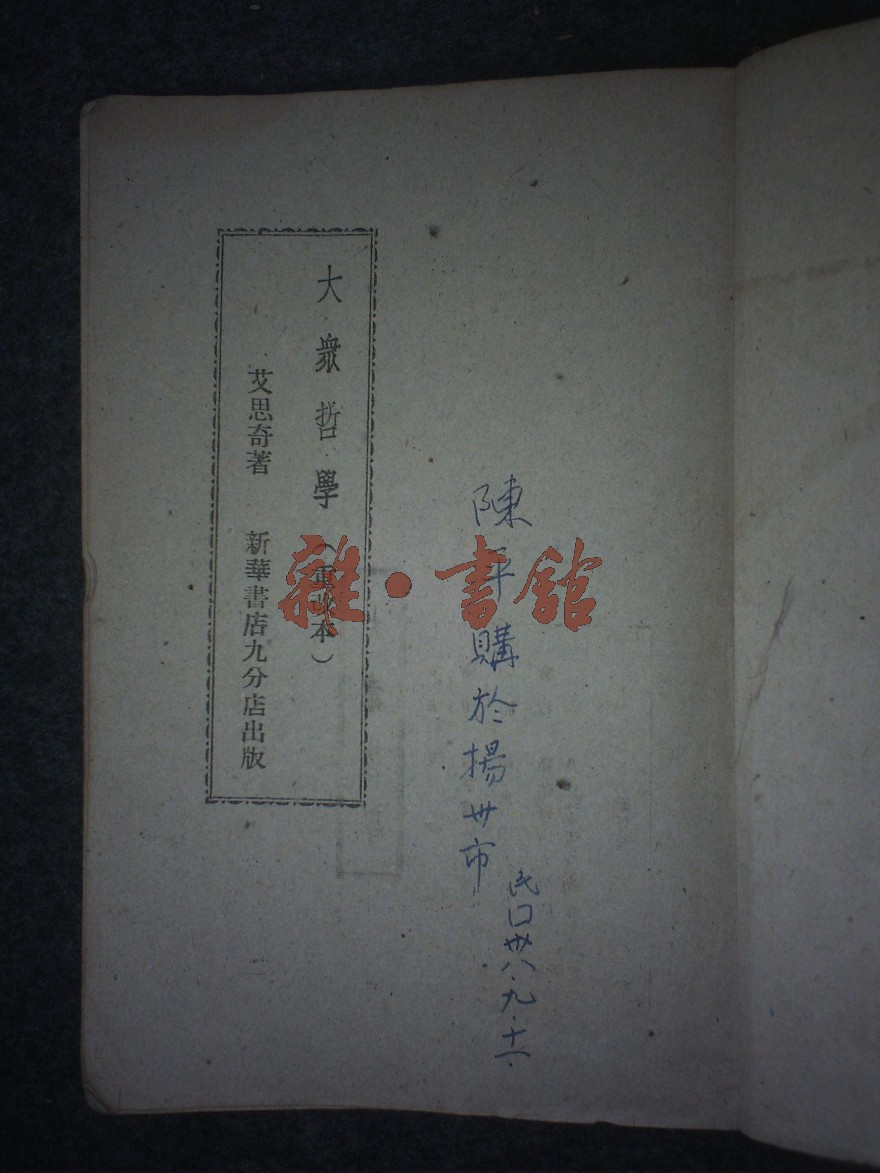 大衆哲學（重改本）
艾思奇著 新華書店九分店出版
陳平購於揚州市
民囗卅八.九.十一.
雜·書館